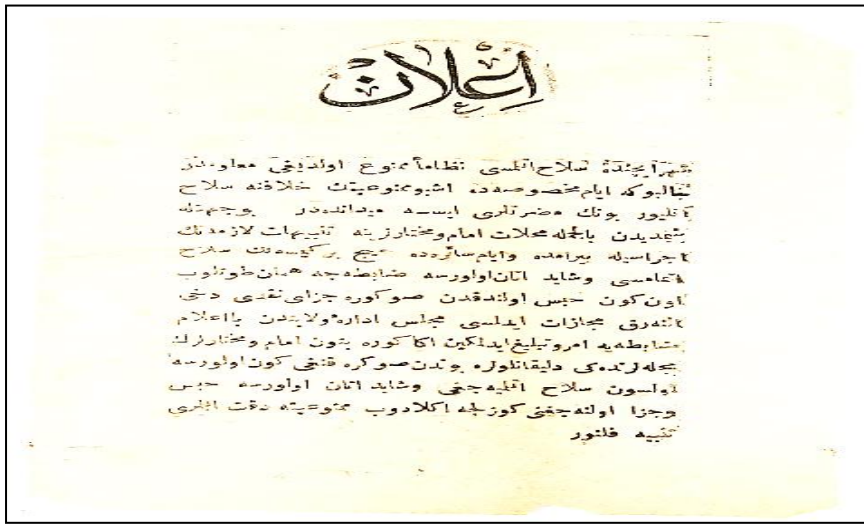 اعلان
شهر ایچنده سلاح اتلمسی نظاماً ممنوع اولدیغی معلومدر
بوكه ایام مخصوصه‌ده اشبو ممنوعیتك خلافنه سلاح
اتلیور بونك مضرتلری ایسه میدانده‌در بوجهتله
شیمدیدن بالجمله محلات امام ومختارلرینه تنبیهات لازمه‌نك
اجراسیله بیرامده وایام سائره‌ده هیچ بر كیمسه‌نك سلاح
اتمامسی وشاید اتان اولورسه ضابطه‌جه همان طوتیلوب
اون كون حبس اولندقدن صوكره جزای نقدی دخی
النه‌رق مجازات ایدلمسی مجلس اداره ولایتدن بااعلام
ضابطه‌یه امر وتبلیغ ایدلمكین اكا كوره بتون امام ومختارلرك
محله‌لرنده‌كی دلیقانلولره بوندن صوكره قنغی كون اولورسه
اولسون سلاح اتلمیه‌جغی وشاید اتان اولورسه حبس
وجزا اولنه‌جغنی كوزلجه اكلادوب ممنوعیته دقت اتملری
تنبیه قلنور